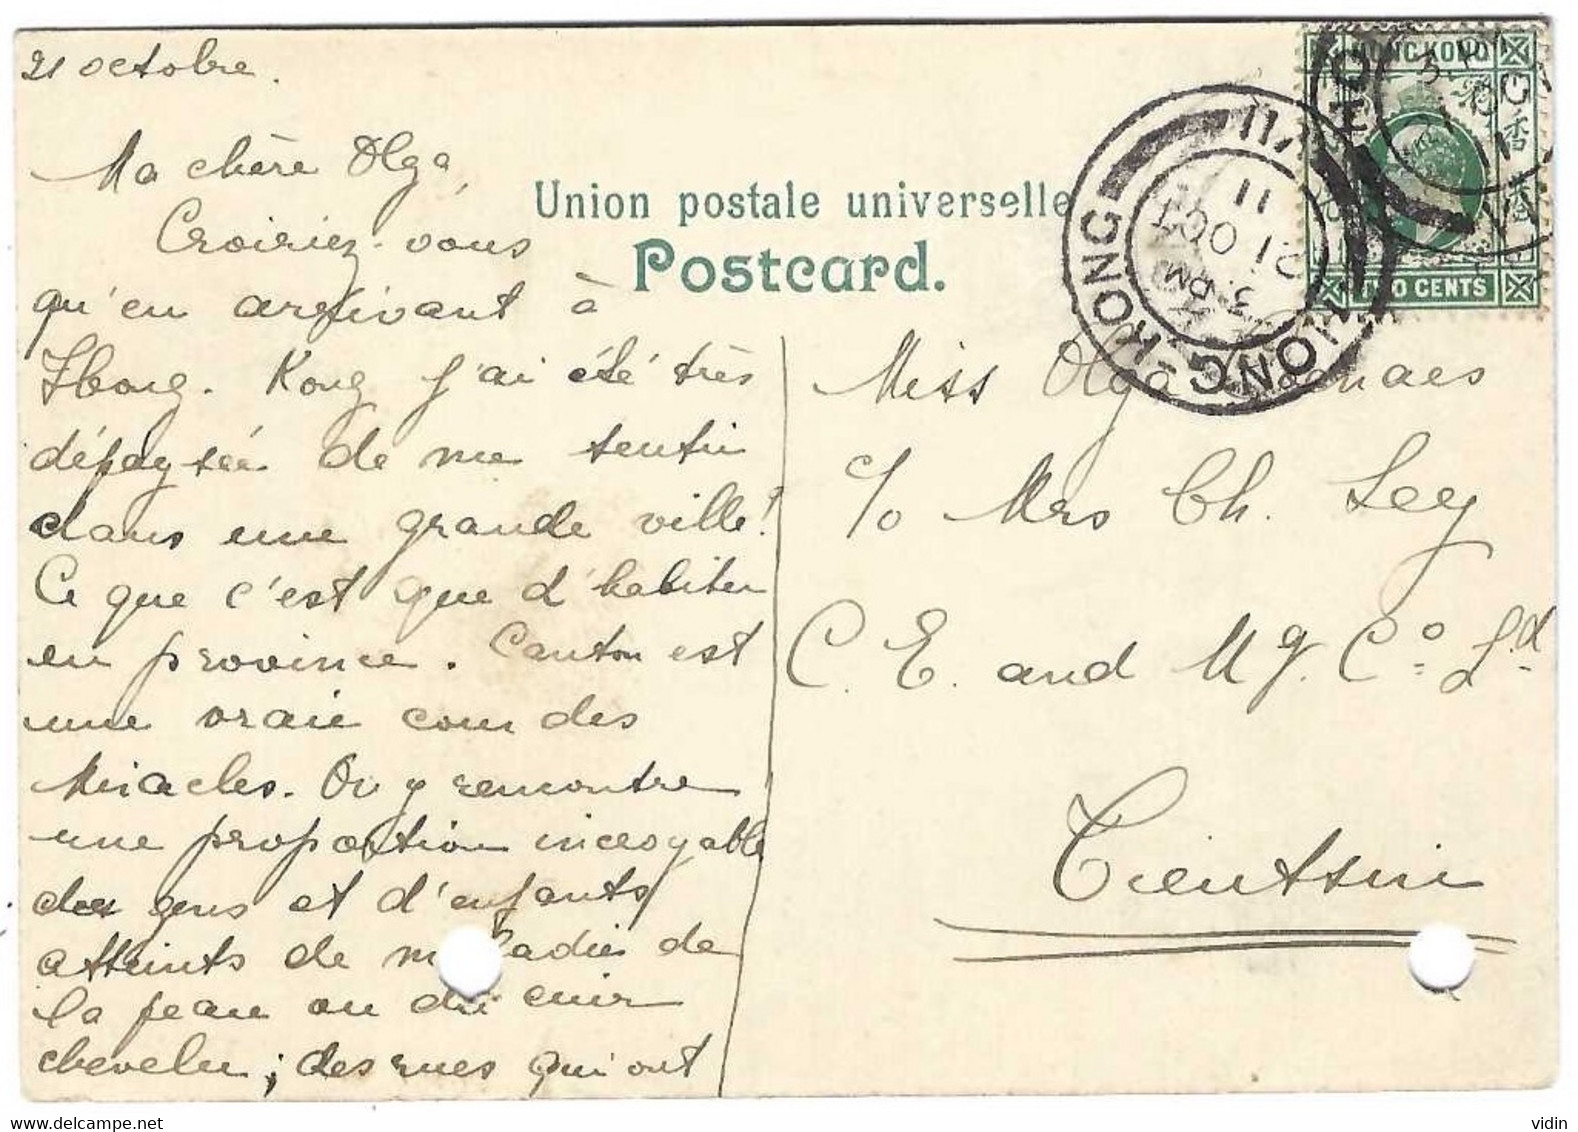 21 octobre.
Ma chère Olga,
Croiriez-vous
qu'en arrivant à
Hong-Kong j'ai été très
dépaysée de me sentir
dans une grande ville!
Ce que c'est que d'habiter
en province. Canton est
une vraie cour des
Miracles. On y rencontre
une proportion incroyable
des gens et d'enfants
atteints de maladies de
la peau ou du cuir
chevelu; des rues qui ont
Union postale universelle
Postcard.
HONG KONG
TWO CENTS
HONG-KONG
3. PM
21 OCT
11
Miss Olga
c/o Mrs Ch. Ley
C. E. and Mg. Co. Ld
Tientsin
vidin